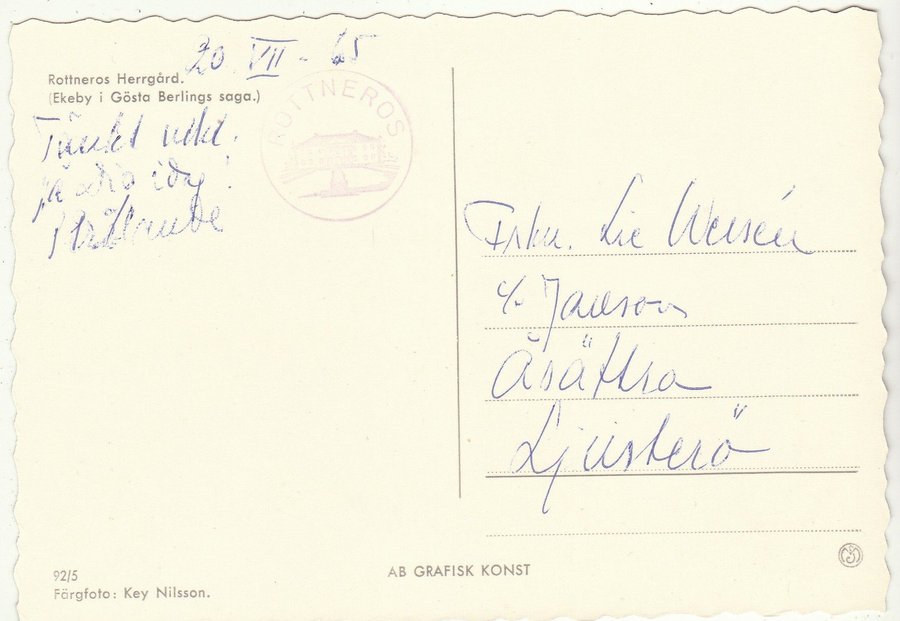 20 VII - 65
Rottneros Herrgård.
(Ekeby i Gösta Berlings saga.)
ROTTNEROS
i dag!
Frkn. Lie
c/o Janson
Åsättra
Ljusterö
92/5
Färgfoto: Key Nilsson.
AB GRAFISK KONST